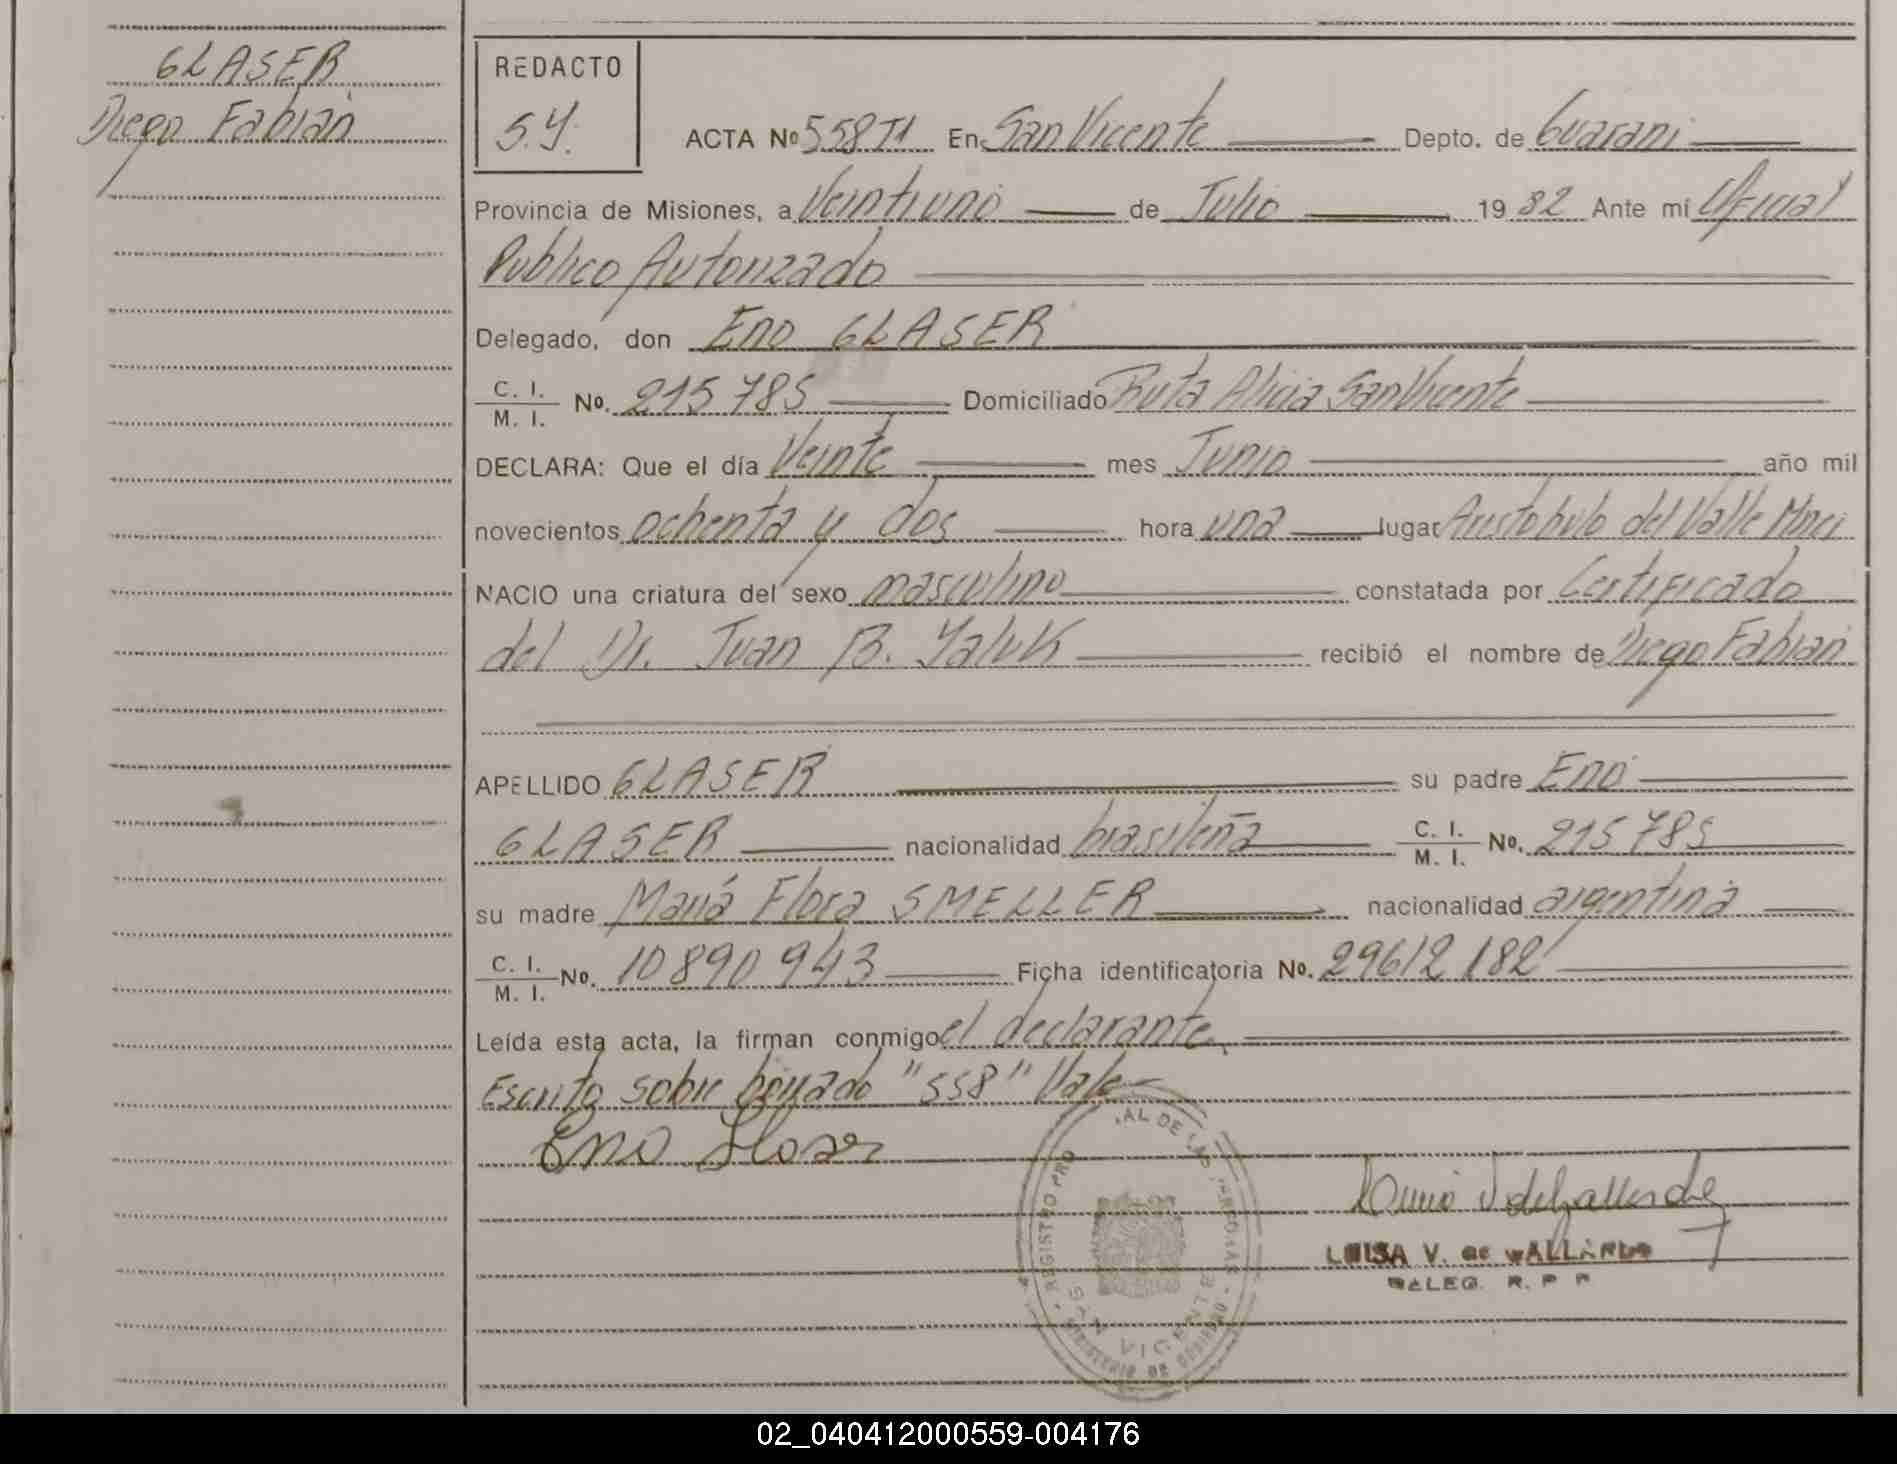 GLASER
Diego Fabián
REDACTO
S.Y.
ACTA Nº 558 T1 En San Vicente Depto. de Guaraní
Provincia de Misiones, a Veintiuno de Julio 19 82 Ante mí Oficial
Publico Autorizado
Delegado, don Eno GLASER
C. I. / M. I. No. 215785 Domiciliado Ruta Alicia San Vicente
DECLARA: Que el día Veinte mes Junio año mil
novecientos ochenta y dos hora una lugar Aristobulo del Valle Mnes
NACIO una criatura del sexo masculino constatada por Certificado
del Dr. Juan B. Yaluk recibió el nombre de Diego Fabián
APELLIDO GLASER su padre Eno
GLASER nacionalidad brasileña C. I. / M. I. No. 215785
su madre María Flora SMELLER nacionalidad argentina
C. I. / M. I. No. 10890943 Ficha identificatoria No. 29612182
Leída esta acta, la firman conmigo el declarante,
Escrito sobre borrado "558" Vale
Eno Glaser
REGISTRO PRO AL DE LAS PERSONAS
SAN VICENTE
MINISTERIO DE GOBIERNO
LUISA V. de GALLARDO
DELEG. R. P. P.
02_040412000559-004176